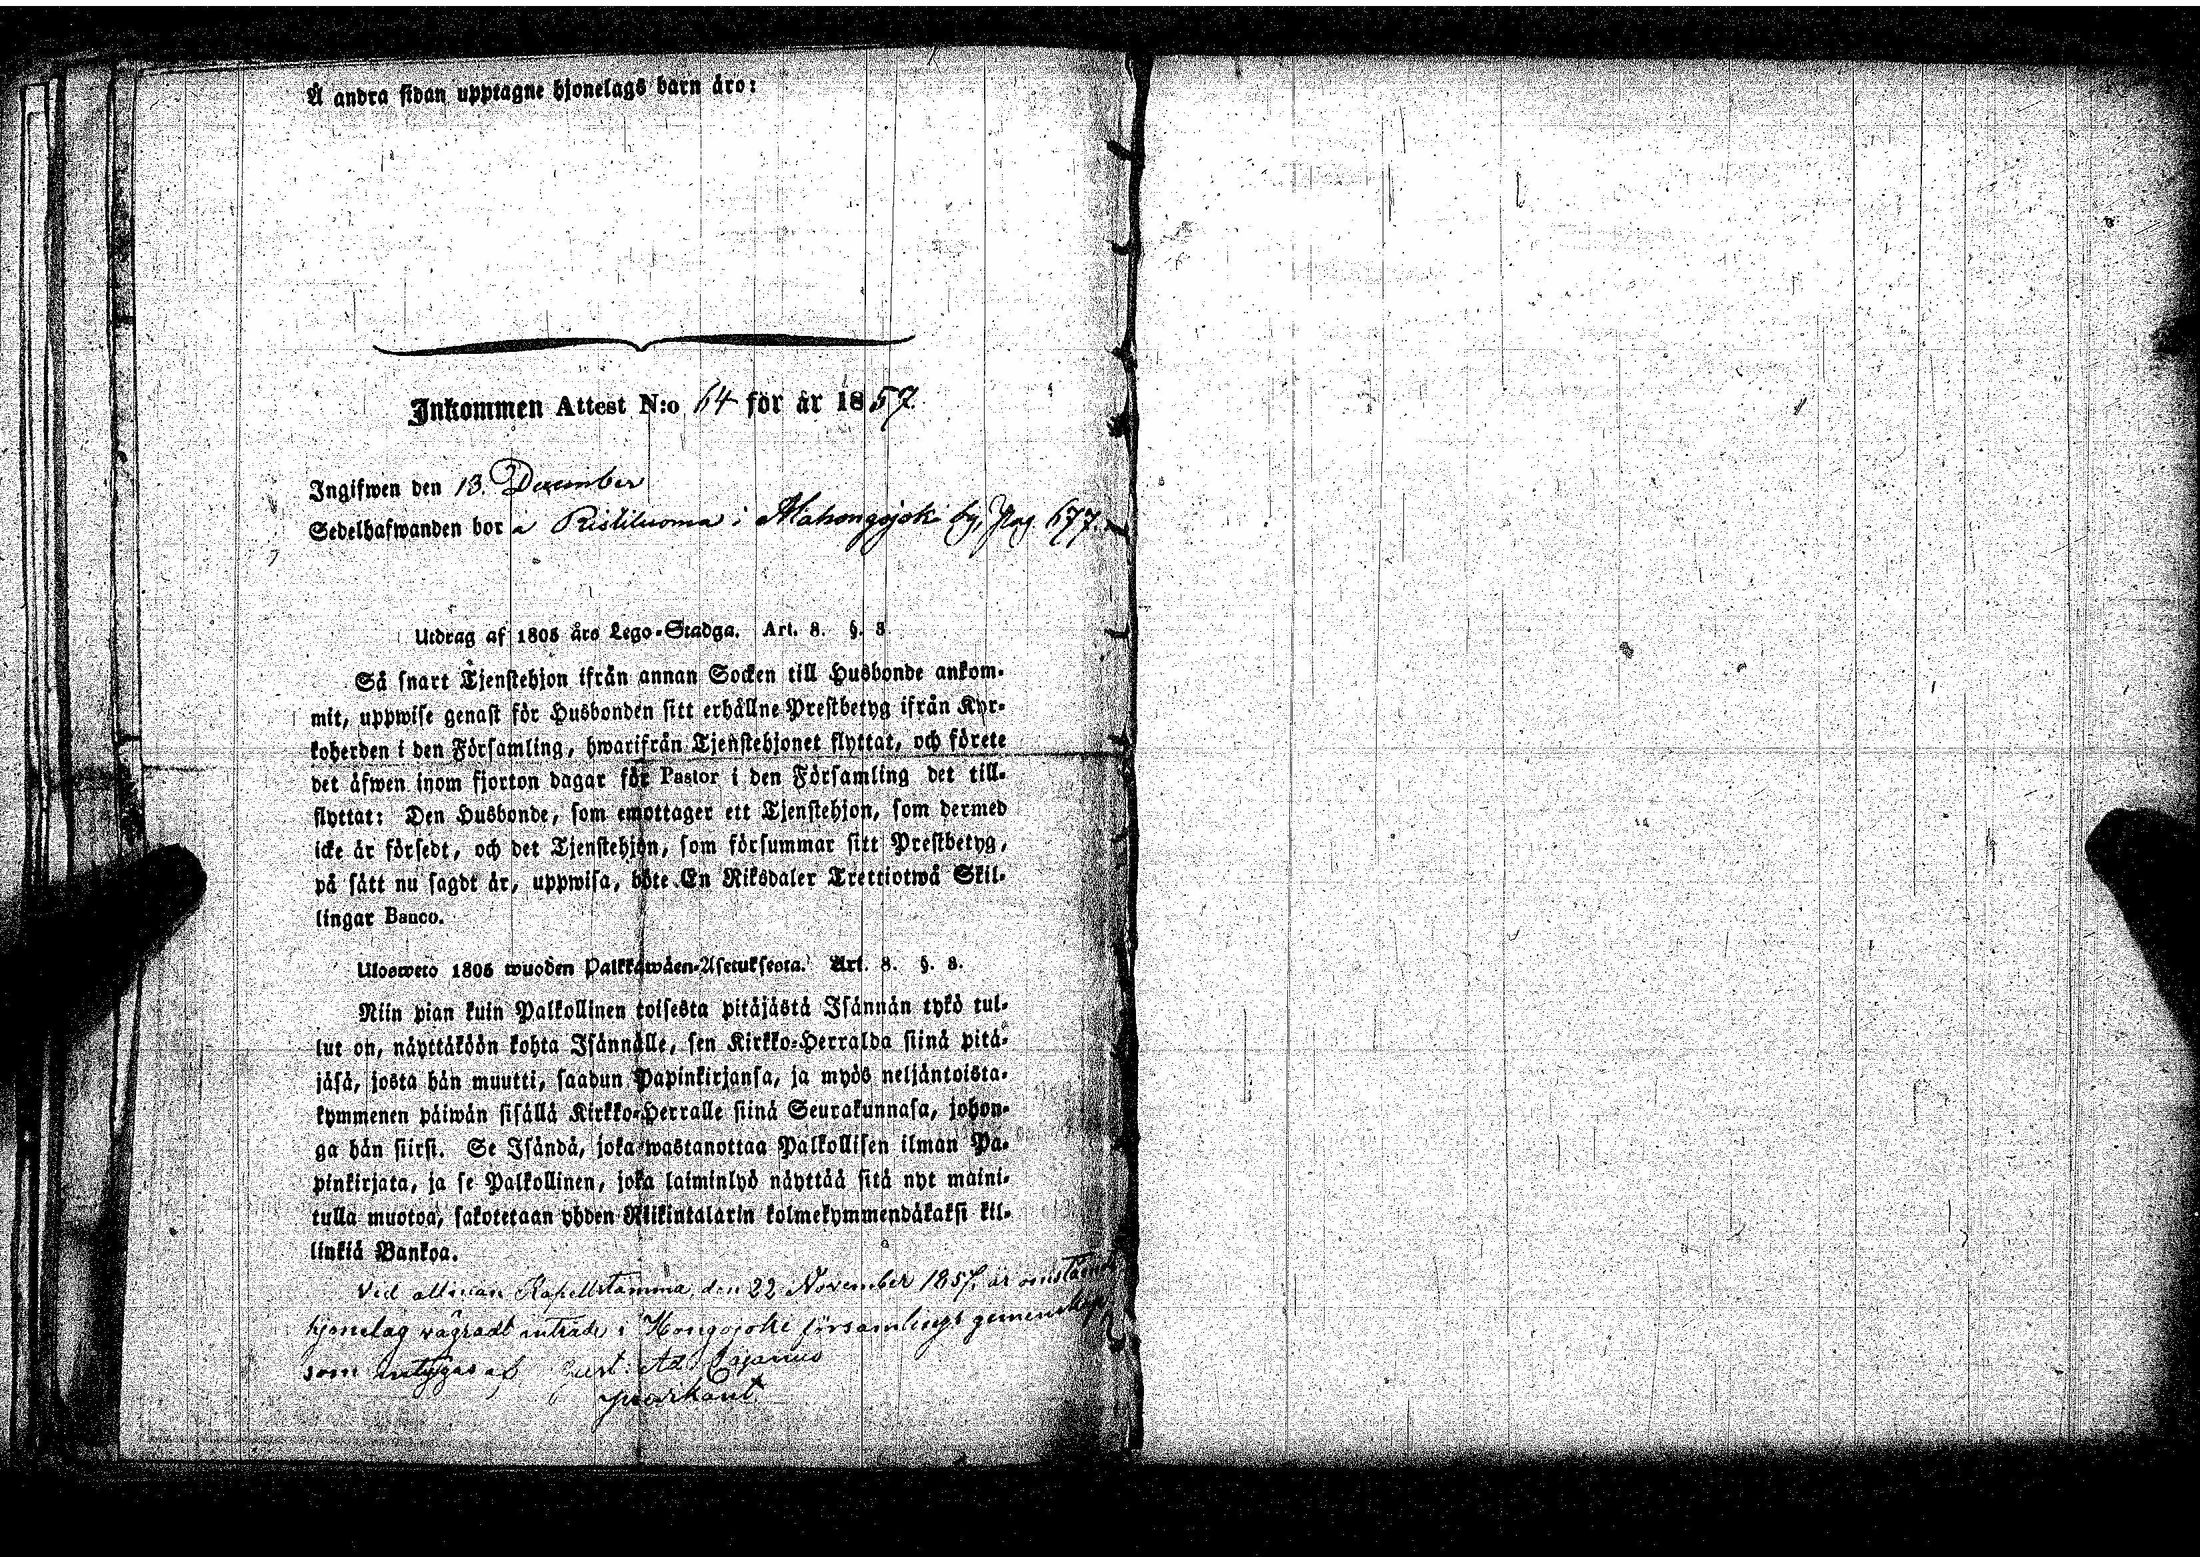 Å andra sidan upptagne hjonelags barn äro:
Inkommen Attest N:o 64 för år 1857.
Ingifwen den 13. December
Sedelhafwanden bor a Ristiluoma i Mahongojoki by, Pag. 677.
Utdrag af 1805 års Lego-Stadga. Art. 8. §. 3
Så snart Tjenstehjon ifrån annan Socken till Husbonde ankom-
mit, uppwise genast för Husbonden sitt erhållne Prestbetyg ifrån Kyr-
koherden i den Församling, hwarifrån Tjenstehjonet flyttat, och förete
det äfwen inom fjorton dagar för Pastor i den Församling det till-
flyttat: Den Husbonde, som emottager ett Tjenstehjon, som dermed
icke är försedt, och det Tjenstehjon, som försummar sitt Prestbetyg,
på sätt nu sagdt är, uppwisa, böte En Riksdaler Trettiotwå Skil-
lingar Banco.
Ulosweto 1805 wuoden Palkkawäen-Asetuksesta. Art. 8. §. 3.
Niin pian kuin Palkollinen toisesta pitäjästä Isännän tykö tul-
lut on, näyttäköön kohta Isännälle, sen Kirkko-Herralda siinä pitä-
jäsä, josta hän muutti, saadun Papinkirjansa, ja myös neljäntoista-
kymmenen päiwän sisällä Kirkko-Herralle siinä Seurakunnasa, johon-
ga hän siirsi. Se Isändä, joka wastanottaa Palkollisen ilman Pa-
pinkirjata, ja se Palkollinen, joka laiminlyö näyttää sitä nyt maini-
tulla muotoa, sakotetaan yhden Riikintalarin kolmekymmendäkaksi kil-
linkiä Bankoa.
Vid allmän Kapellstämma den 22 November 1857, är omstående
hjonelag vägradt inträde i Hongojoki församlings gemenskap,
som intygas af Gust. Ad. Cajanus